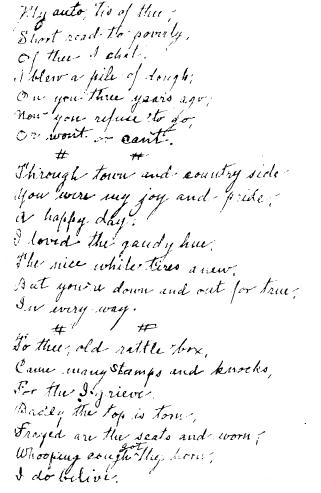 My auto, 'tis of thee,
Short road to poverty,
Of thee I chat.
I blew a pile of dough,
On you three years ago,
Now you refuse to go,
Or won't or can't.
# #
Through town and country side
You were my joy and pride,
A happy day.
I loved the gaudy hue,
The nice white tires anew,
But you're down and out for true,
In every way.
# #
To thee, old rattle box,
Came many stamps and knocks,
For thee I grieve.
Badly the top is torn,
Frayed are the seats and worn,
Whooping cough got thy horn,
I do belive.